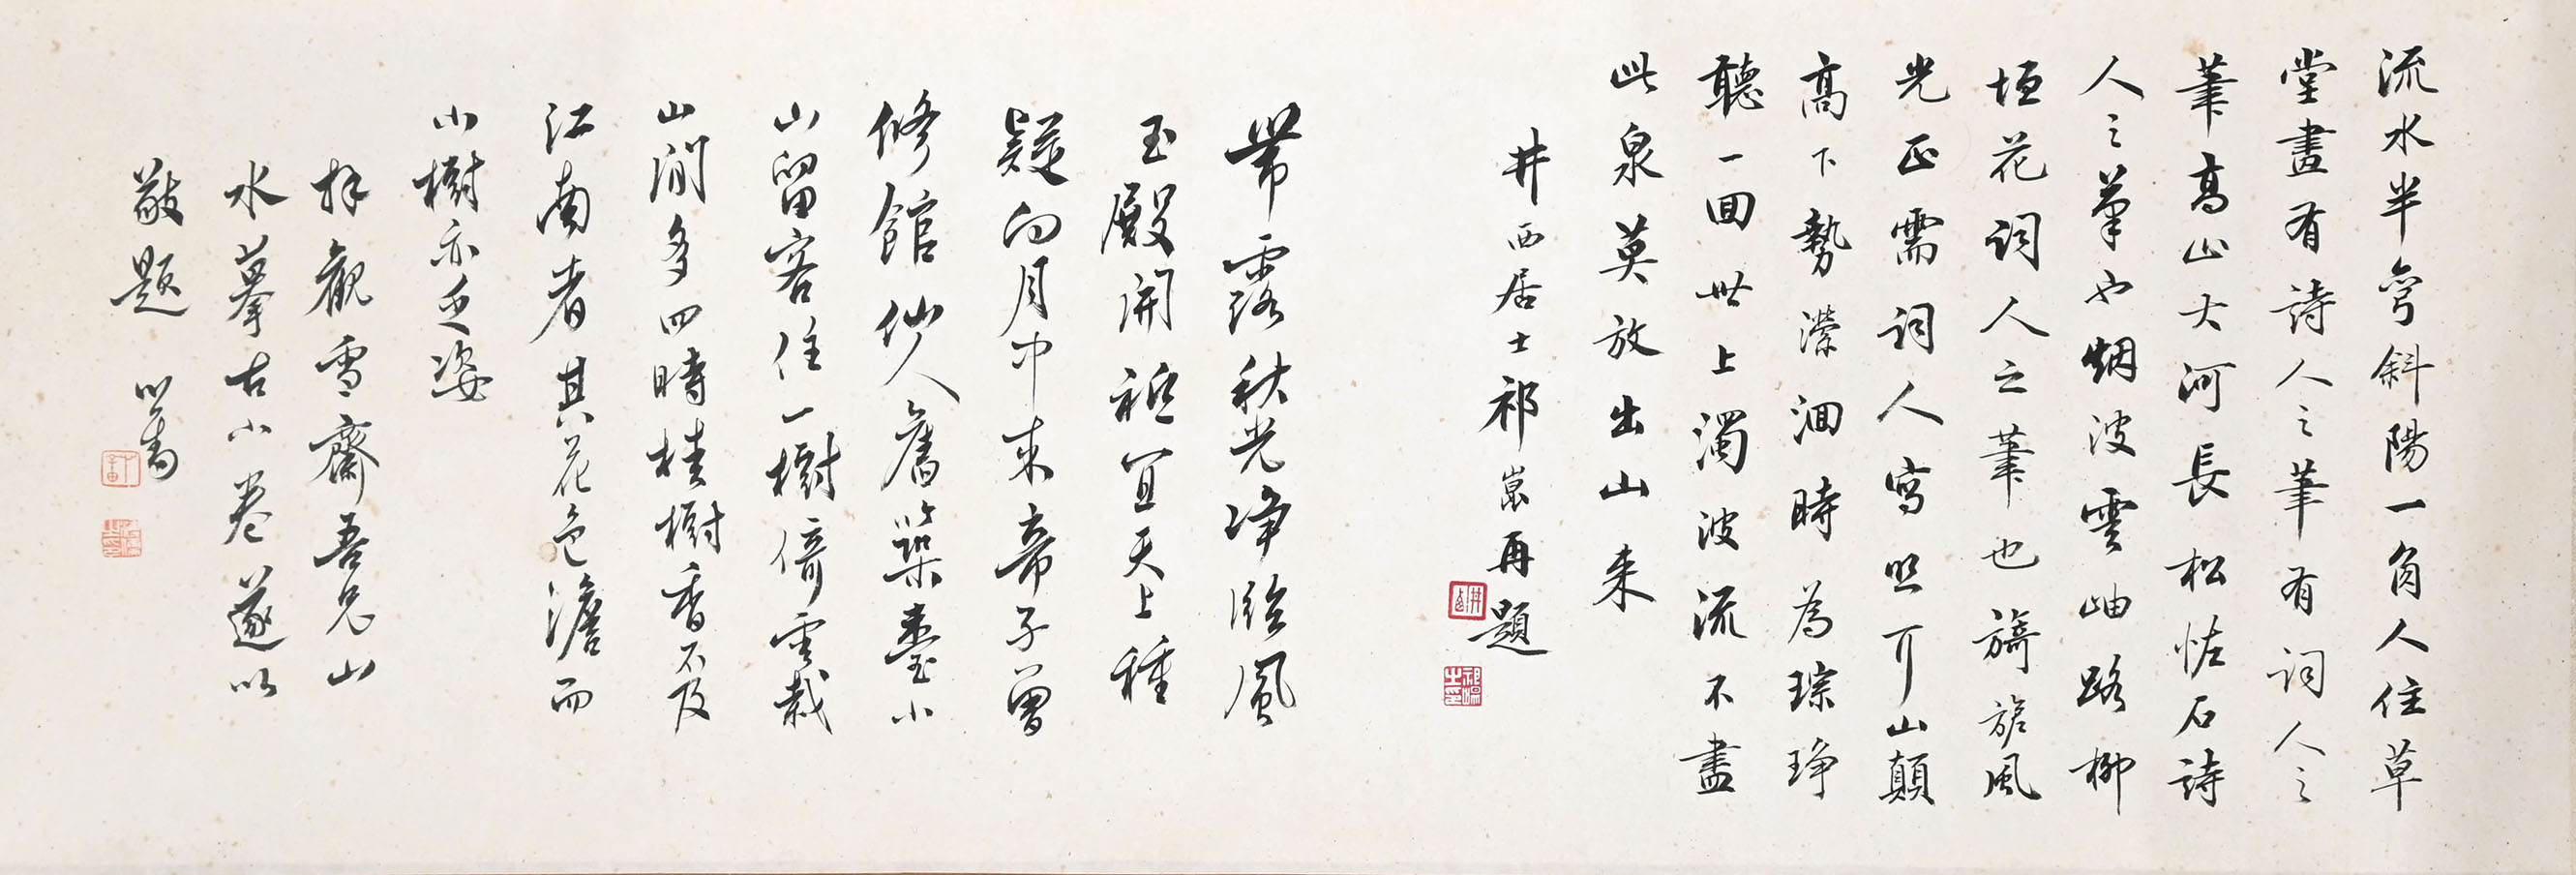 流水半彎斜陽一角人住草
堂畫有詩人之筆有詞人之
筆高山大河長松怪石詩
人之筆也烟波雲岫路柳
垣花詞人之筆也旖旎風
光正需詞人寫照耳山顛
高下勢濚洄時為琮琤
聽一回世上濁波流不盡
此泉莫放出山来
井西居士祁崑再題
帶露秋光淨臨風
玉殿開祗宜天上種
疑向月中来帝子曾
修館仙人舊築臺小
山留客住一樹倚雲栽
山間多四時桂樹香不及
江南者其花色澹而
小樹亦乏姿
拜觀雪齋吾兄山
水摹古小卷遂以
敬題 心畬